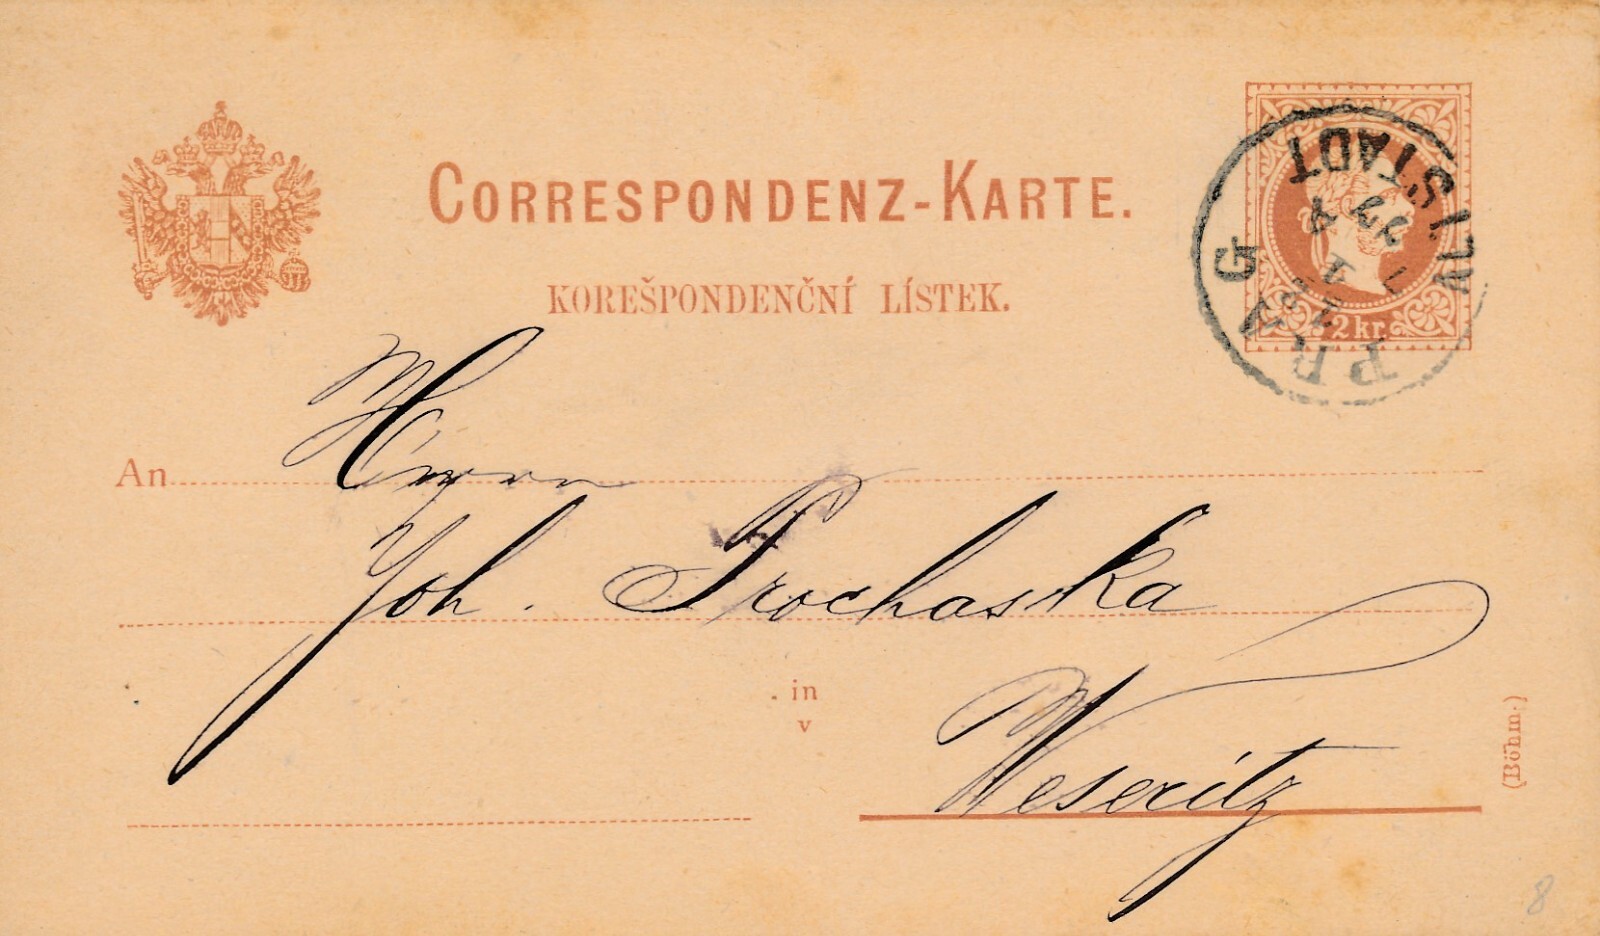 CORRESPONDENZ-KARTE.
KOREŠPONDENČNÍ LÍSTEK.
2 kr.
PRAG
ALTSTADT
An
Herrn
Joh. Prochaska
in
v
Weseritz
(Böhm.)
8